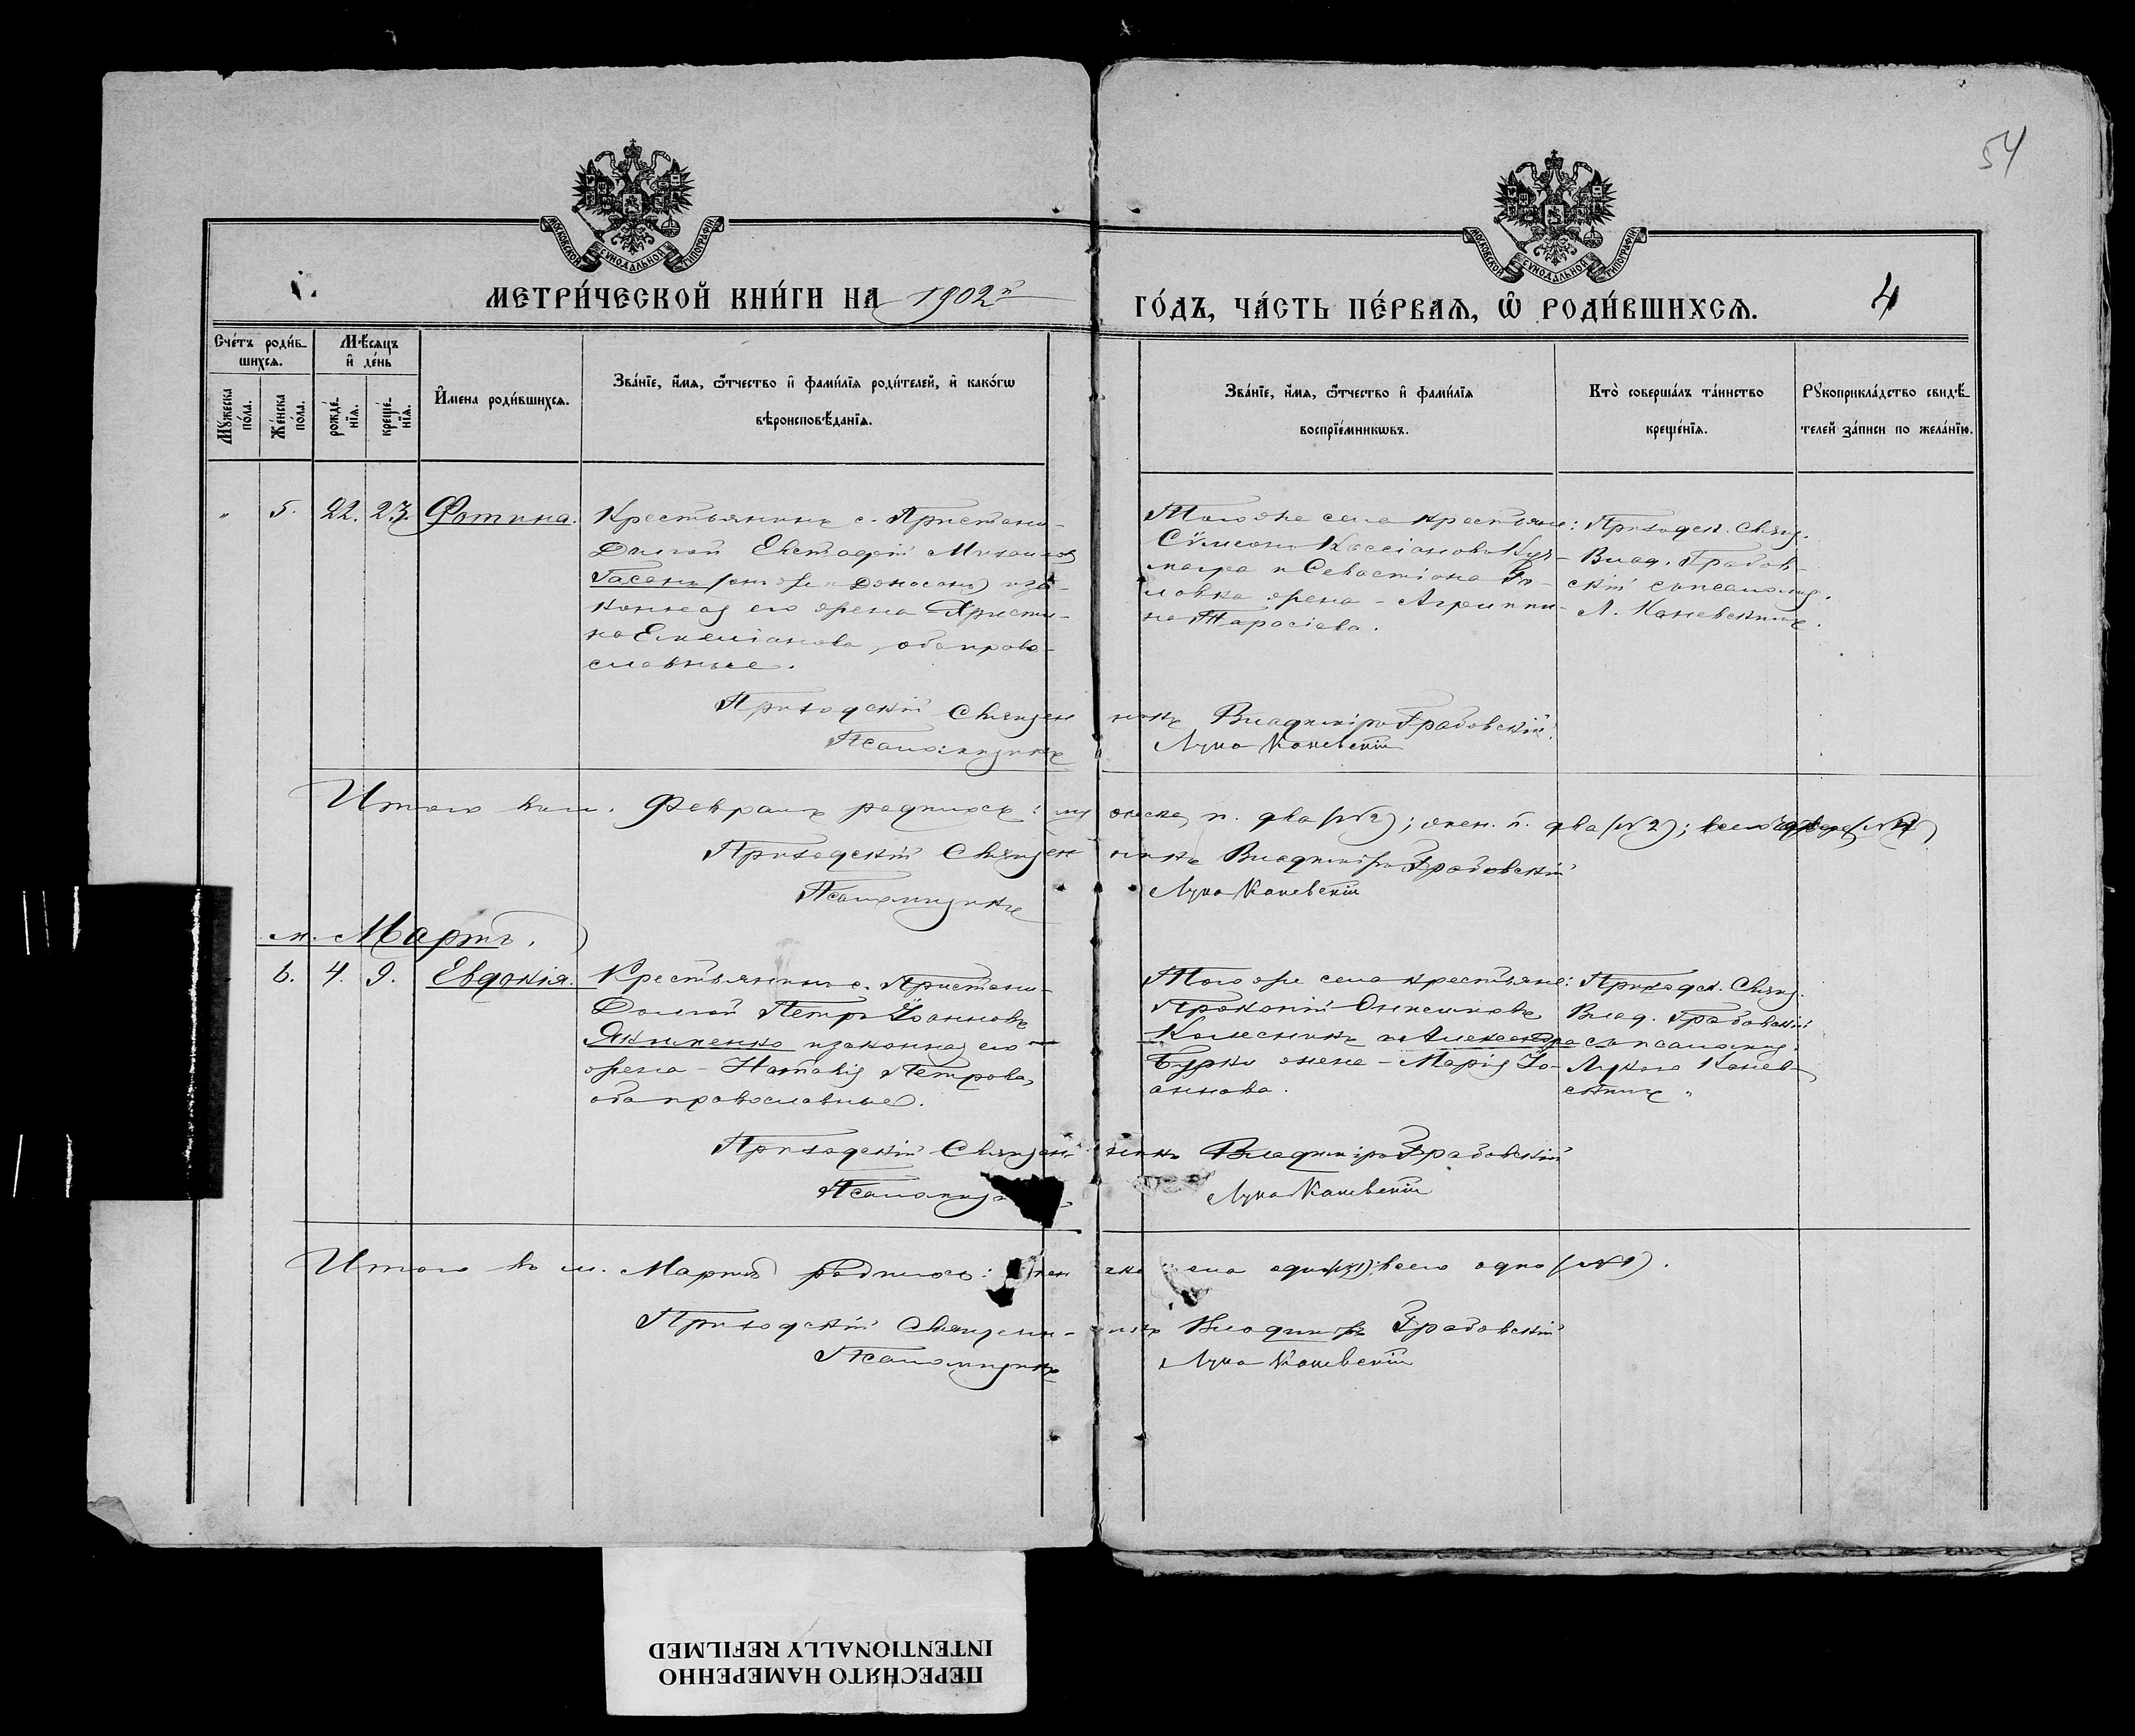 54
МОСКОВСКОЙ СѴНОДАЛЬНОЙ ТИПОГРАФІИ
МОСКОВСКОЙ СѴНОДАЛЬНОЙ ТИПОГРАФІИ
МЕТРИ́ЧЕСКОЙ КНИ́ГИ НА 1902й
ГО́ДЪ, ЧА́СТЬ ПЕ́РВАѦ, Ѽ РОДИ́ВШИХСѦ.
4
Сче́тъ роди́в-
шихсѧ.
Мѣ́сѧцъ
и҆ де́нь
Мꙋ́жеска
по́ла.
Же́нска
по́ла.
рожде́-
нїѧ.
креще́-
нїѧ.
И҆мена роди́вшихсѧ.
Зва́нїе, и҆́мѧ, ѻ҆́тчество и҆ фами́лїѧ роди́телей, и҆ како́гѡ
вѣроисповѣ́данїѧ.
Зва́нїе, и҆́мѧ, ѻ҆́тчество и҆ фами́лїѧ
воспрїе́мникѡвъ.
Кто̀ соверша́лъ та́инство
креще́нїѧ.
Рꙋкоприкла́дство свидѣ́-
телей за́писи по жела́нїю.
" 5. 22. 23. Фотина.
Крестьянинъ с. Пристани-
Долгой Евстафій Михаиловъ
Гасанъ (онъ же и) и за-
конная его жена Христи-
на Емеліанова, оба право-
славные.
Того же села крестьяне:
Сѵмеонъ Кассіановъ
и Севастіана
жена - Агриппи-
на Тарасіева.
Приходск. Свящ.
Влад. Грабов-
скій съ псаломщ.
Л. Каневскимъ.
Приходскій Священникъ Владиміръ Грабовскій
Псаломщикъ Лука Каневскій
Итого въ м. Февралѣ родилось: мужеска п. два (№2); жен. п. два (№2); всего четыре (№4)
Приходскій Священникъ Владиміръ Грабовскій
Псаломщикъ Лука Каневскій
м. Мартъ.
6. 4. 9. Евдокія.
Крестьянинъ с. Пристани-
Долгой Петръ Іоанновъ
Якименко и законная его
жена - Наталія Петрова,
оба православные.
Того же села крестьяне:
Прокопій Онисимовъ
Колесникъ и Александра
Бурко жена - Марія Іо-
аннова.
Приходск. Свящ.
Влад. Грабовскій
съ псаломщ.
Лукою Канев-
скимъ.
Приходскій Священникъ Владиміръ Грабовскій
Псаломщикъ Лука Каневскій
Итого въ м. Мартѣ родилось: женска пола одно (№1); всего одно (№1).
Приходскій Священникъ Владиміръ Грабовскій
Псаломщикъ Лука Каневскій
ПЕРЕСНЯТО НАМЕРЕННО
INTENTIONALLY REFILMED